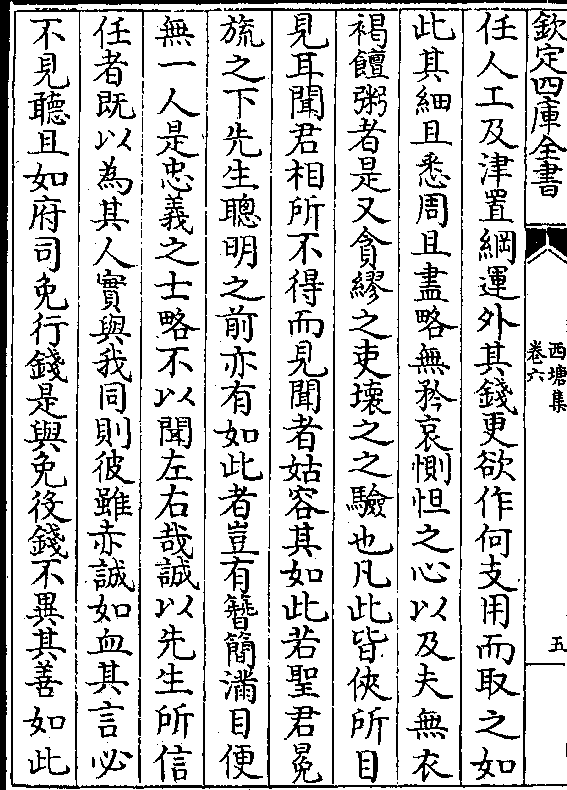 欽定四庫全書
西塘集
卷六
五
任人工及津置綱運外其錢更欲作何支用而取之如
此其細且悉周且盡略無矜哀惻怛之心以及夫無衣
褐饘粥者是又貪繆之吏壞之之驗也凡此皆俠所目
見耳聞君相所不得而見聞者姑容其如此若聖君冕
旒之下先生聰明之前亦有如此者豈有簪簡滿目便
無一人是忠義之士略不以聞左右哉誠以先生所信
任者既以為其人實與我同則彼雖赤誠如血其言必
不見聽且如府司免行錢是與免役錢不異其善如此